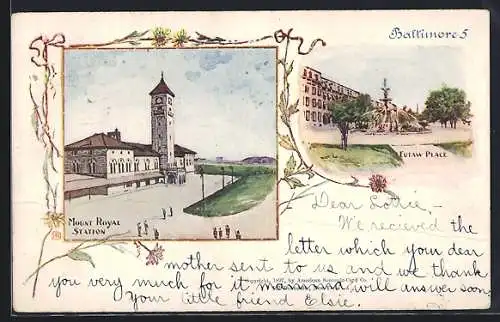 Baltimore 5
MOUNT ROYAL
STATION
EUTAW PLACE
Dear Lottie,-
We recieved the
letter which your dear
mother sent to us and we thank
Copyright, 1897, by American Souvenir-Card Co.
you very much for it mamma will answer soon
Your little friend Elsie.